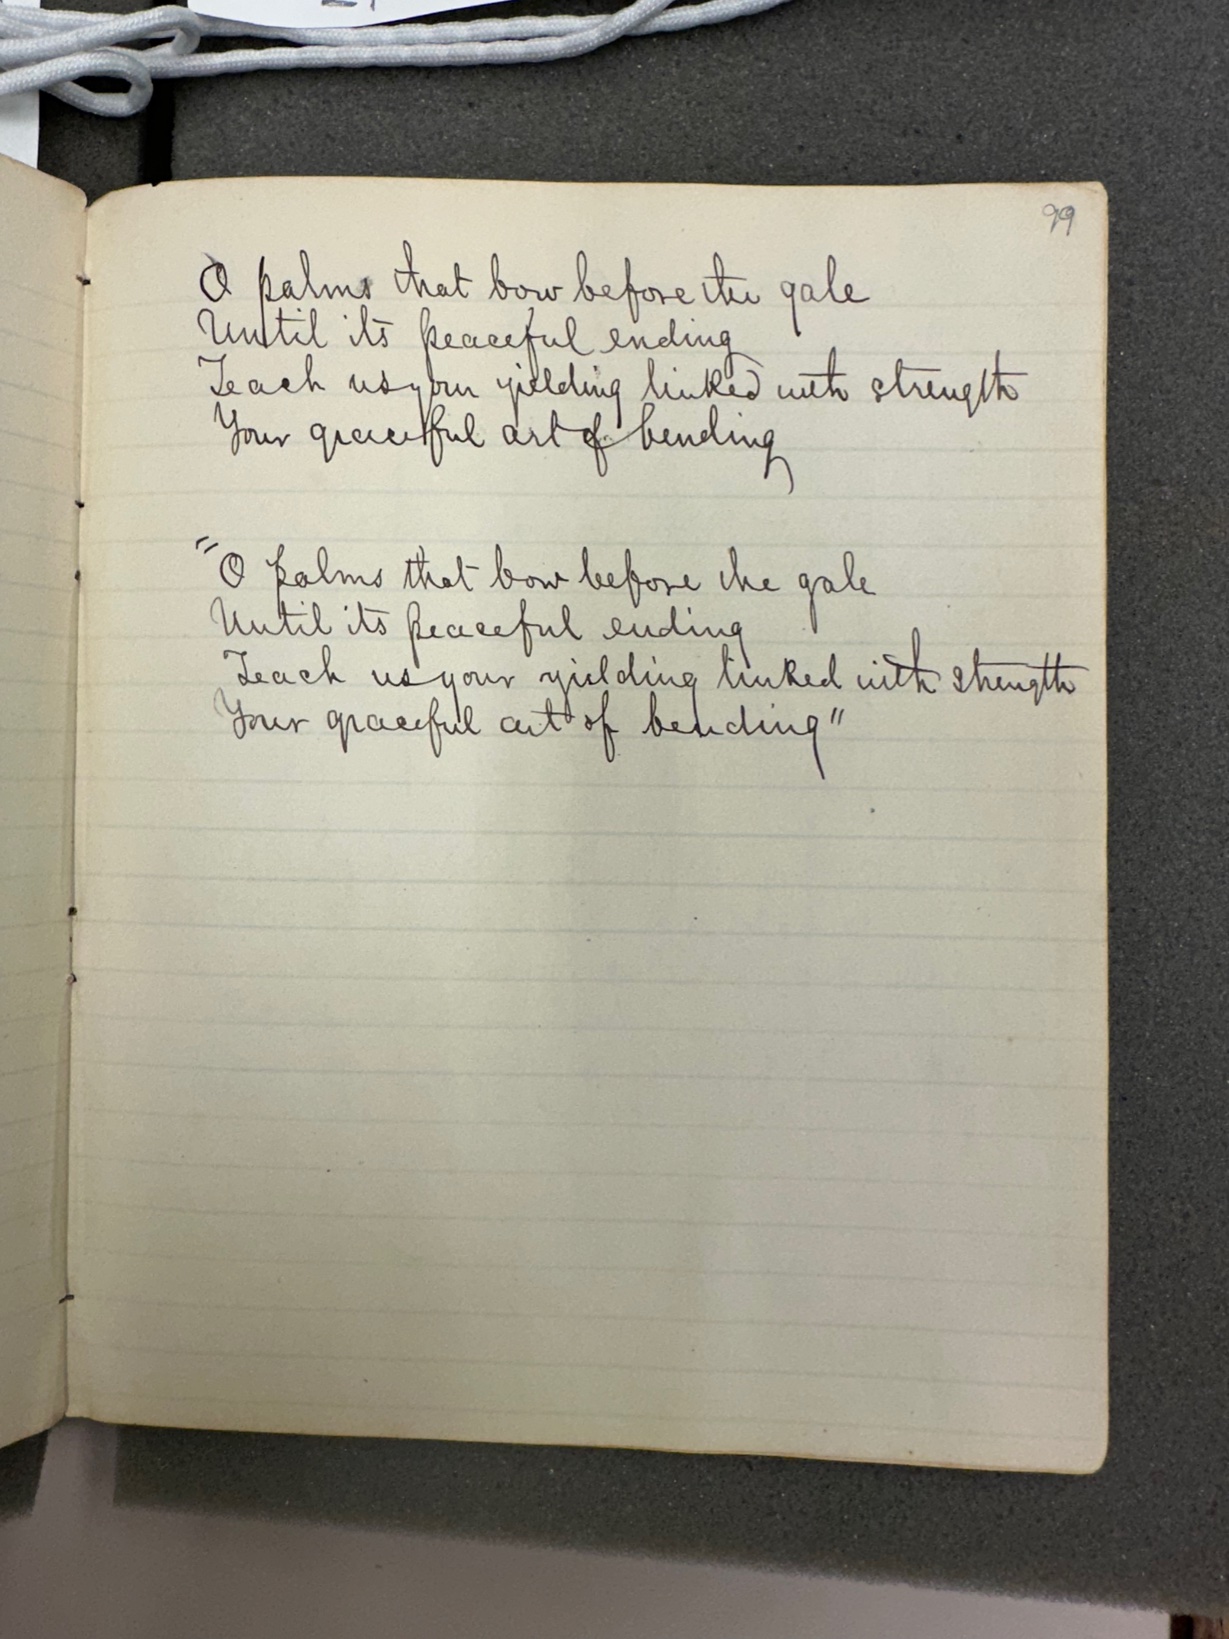 99
O palms that bow before the gale
Until its peaceful ending
Teach us your yielding linked with strength
Your graceful art of bending
"O palms that bow before the gale
Until its peaceful ending
Teach us your yielding linked with strength
Your graceful art of bending"